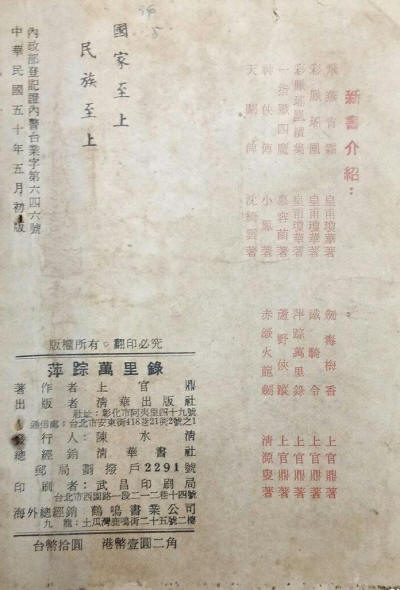 新書介紹：
飛燕青霜　皇甫瓊華著
彩鳳瑤凰　皇甫瓊華著
彩鳳瑤凰續集　皇甫瓊華著
一指懾四魔　慕容蘭著
神俠傳　小鳳著
天闕碑　沈綺雲著
劍毒梅香　上官鼎著
鐵騎令　上官鼎著
萍踪萬里錄　上官鼎著
蘆野俠蹤　上官鼎著
赤𤍠火龍劍　清源叟著
國家至上
民族至上
內政部登記證內警台業字第六四六號
中華民國五十年五月初版
版權所有◦翻印必究
萍踪萬里錄
著作者　上官鼎
出版者　清華出版社
社址：彰化市阿夷里四十九號
通信處：台北市安東街418巷21衖2號之1
發行人　陳水清
總經銷　清華書社
郵局劃撥戶2291號
印刷者　武昌印刷局
台北市西園路一段二一二巷十四號
海外總經銷　鶴鳴書業公司
九龍：土瓜灣鹿鳴街二十五號二樓
台幣拾圓　港幣壹圓二角